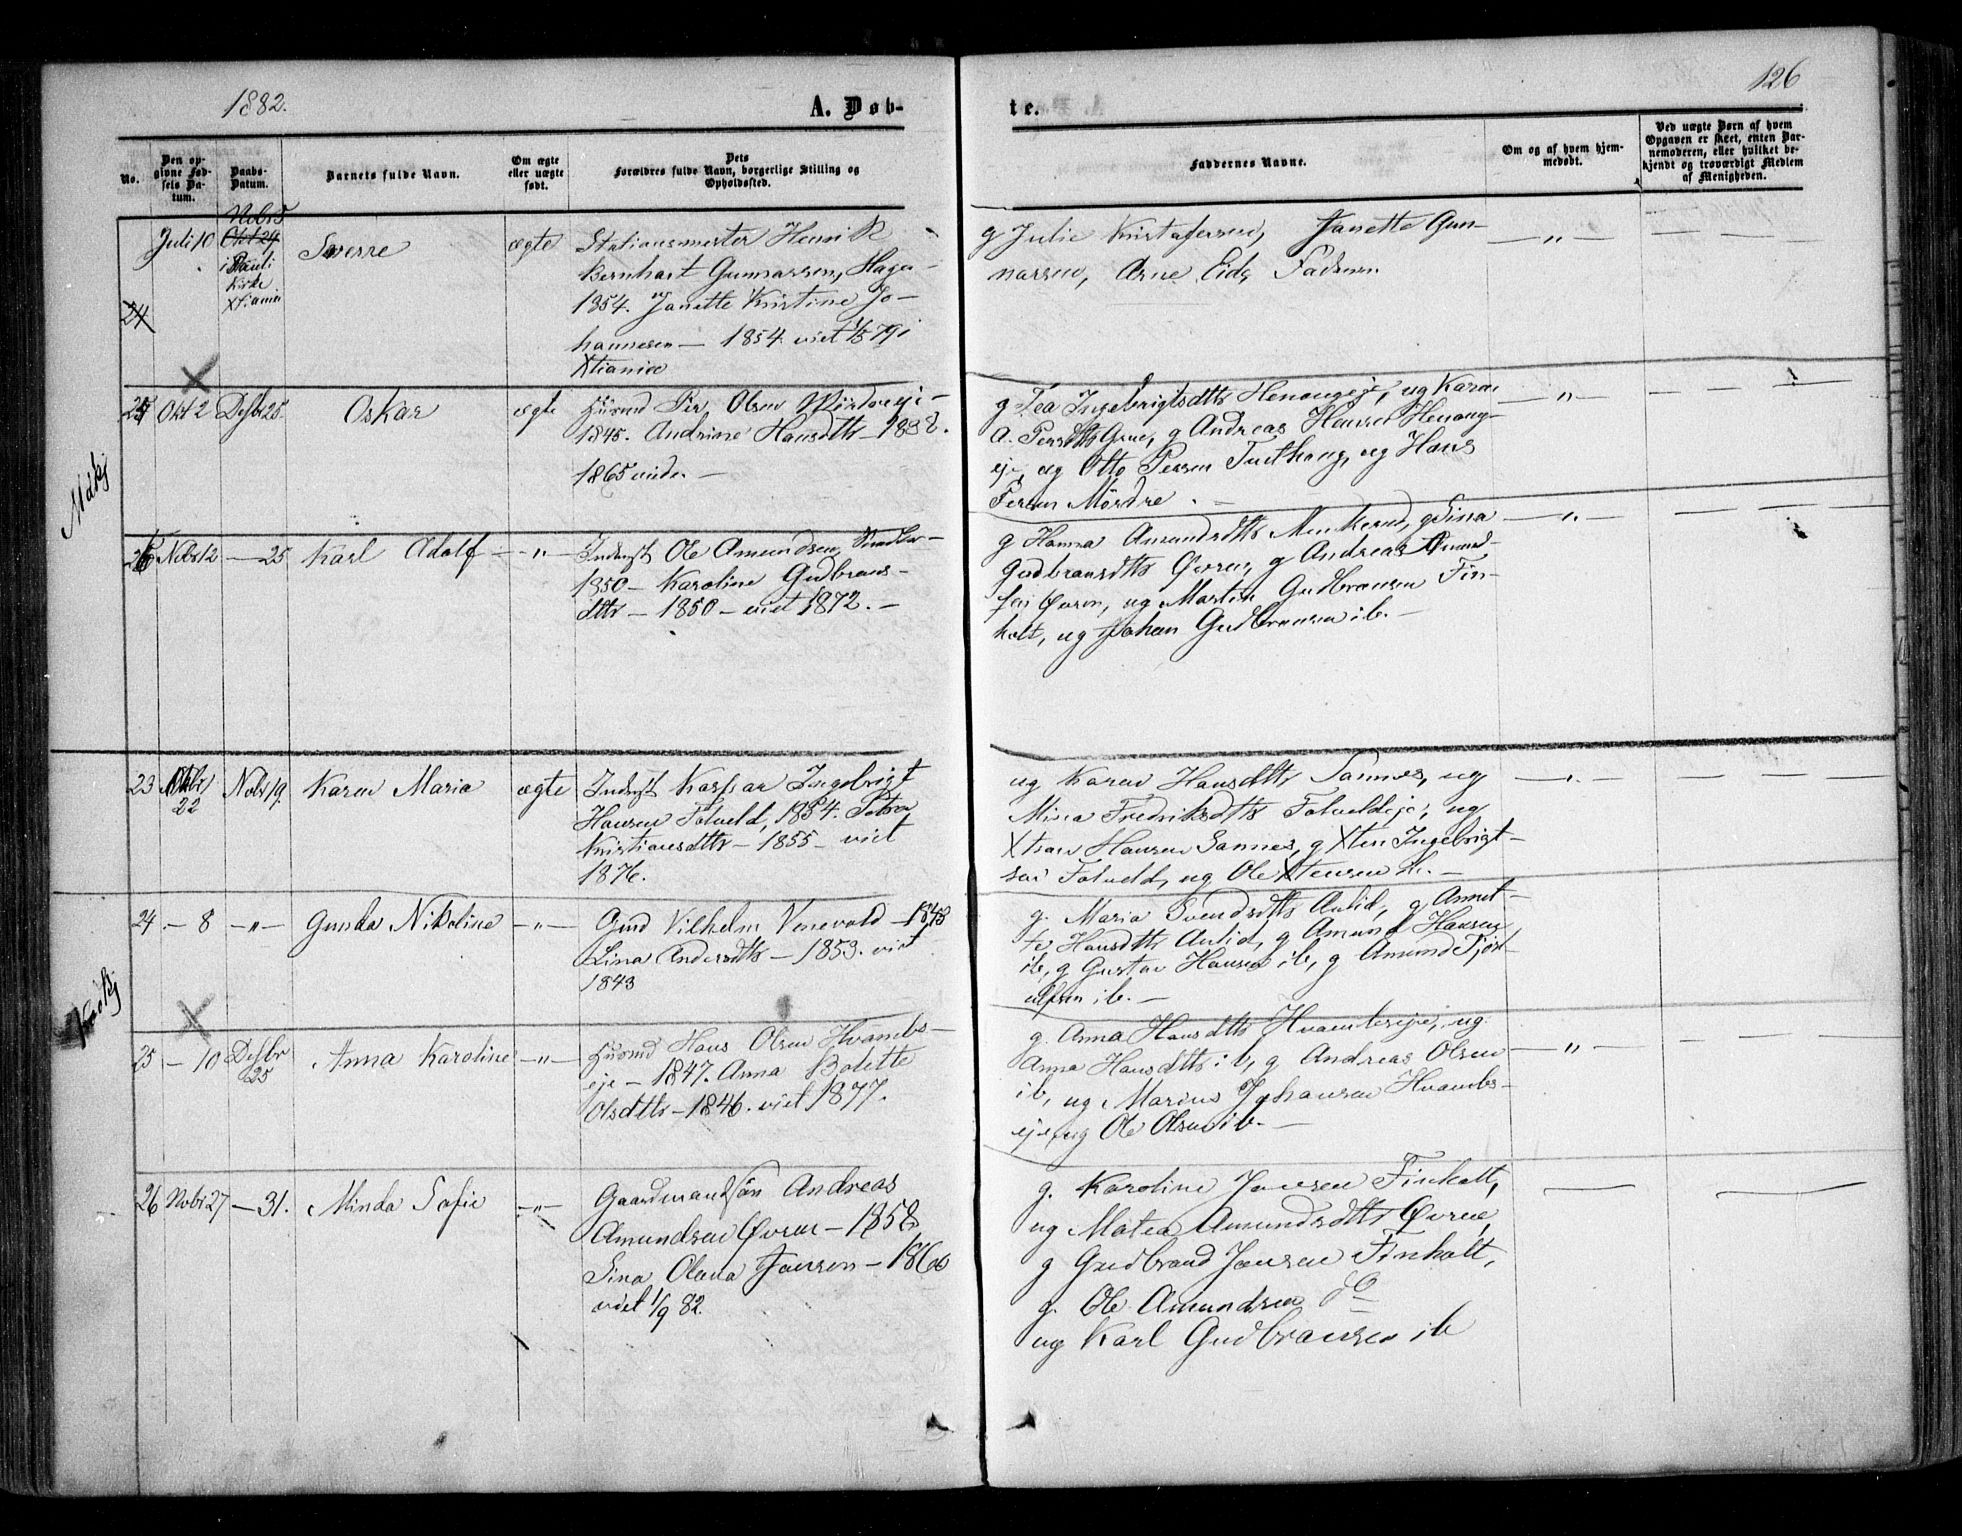 1882.
A. Døb-
te.
126
No.
Den op-
givne Fød-
sels Da-
tum.
Daabs-
Datum.
Barnets fulde Navn.
Om ægte
eller uægte
født.
Dets
Forældres fulde Navn, borgerlige Stilling og
Opholdssted.
Faddernes Navne.
Om og af hvem hjem-
medøbt.
Ved uægte Børn af hvem
Opgaven er skeet, enten Bar-
nemoderen, eller hvilket be-
kjendt og troværdigt Medlem
af Menigheden.
24
Juli 10
Nobr 5
Okt 29
i Pauli
Kirke
Xtiania
Sverre
ægte
Stationsmester Henrik
Bernhart Gunnarsen, Haga -
1854. Janette Kristine Jo-
hannesen - 1854. viet 1/5 79 i
Xtiania
g Julie Kristofersen, Janette Gun-
narsen, Arne Eid, Faderen
— " —
25
Okt 2
Desbr 25.
Oskar
ægte
Husmd Per Olsen Mördreeje -
1845. Andrine Hansdtr - 1838.
1865 viede. -
g Tea Ingebrigtsdtr Henaugeje, ug Karen
A. Persdtr Grue, g Andreas Hansen Henaug-
eje, ug Otto Persen Tuthaug, ug Hans
Persen Mördre. -
— " —
Nobr 12
— 25
Karl Adolf
— " —
Inderst Ole Amundsen
1850 - Karoline Gudbrans-
dtr - 1850 - viet 1872. -
g Hanna Amundsdtr Menkerud, g Sina
Gudbransdtr Övren, g Andreas Amund-
sen Övren, ug Martin Gudbransen Fin-
holt, ug Johan Gudbransen ib. -
— " —
Nökj
23
Oktbr
22
Nobr 19.
Karen Maria
ægte
Inderst Kaspar Ingebrigt
Hansen Folveld, 1854. Petra
Kristiansdtr - 1855 - viet
1876.
ug Karen Hansdtr Sannes, ug
Mina Fredriksdtr Folveldeje, ug
Xtian Hansen Sannes, g Xten Ingebrigt-
sen Folveld, ug Ole Xtensen ib. -
— " —
24
- 8
— " —
Gunda Nikoline
— " —
Gmd Vilhelm Venevold - 1848
Lina Andersdtr - 1853. viet
1843
g. Maria Svendsdtr Aulid, g Annet-
te Hansdtr Aulid, g Amund Hansen
ib, g Gustav Hansen ib, g Amund Tjöst-
ulfsen ib. -
25
- 10
Desbr
25
Anna Karoline
— " —
Husmd Hans Olsen Hvambs-
eje - 1847. Anna Bolette
Olsdtr - 1846. viet 1877.
g. Anna Hansdtr Hvambseje, ug
Anna Hansdtr ib, g Andreas Olsen
ib, ug Marius Johansen Hvambs-
eje, ug Ole Olsen ib. -
— " —
26
Nobr 27
— 31.
Minda Sofie
— " —
Gaardmandsön Andreas
Amundsen Övren - 1858
Sina Olava Jansen - 1860
viet 1/9 82.
g. Karoline Jansen Finholt,
ug Matea Amundsdtr Övren,
g Gudbrand Jansen Finholt,
g. Ole Amundsen do
ug Karl Gudbransen ib